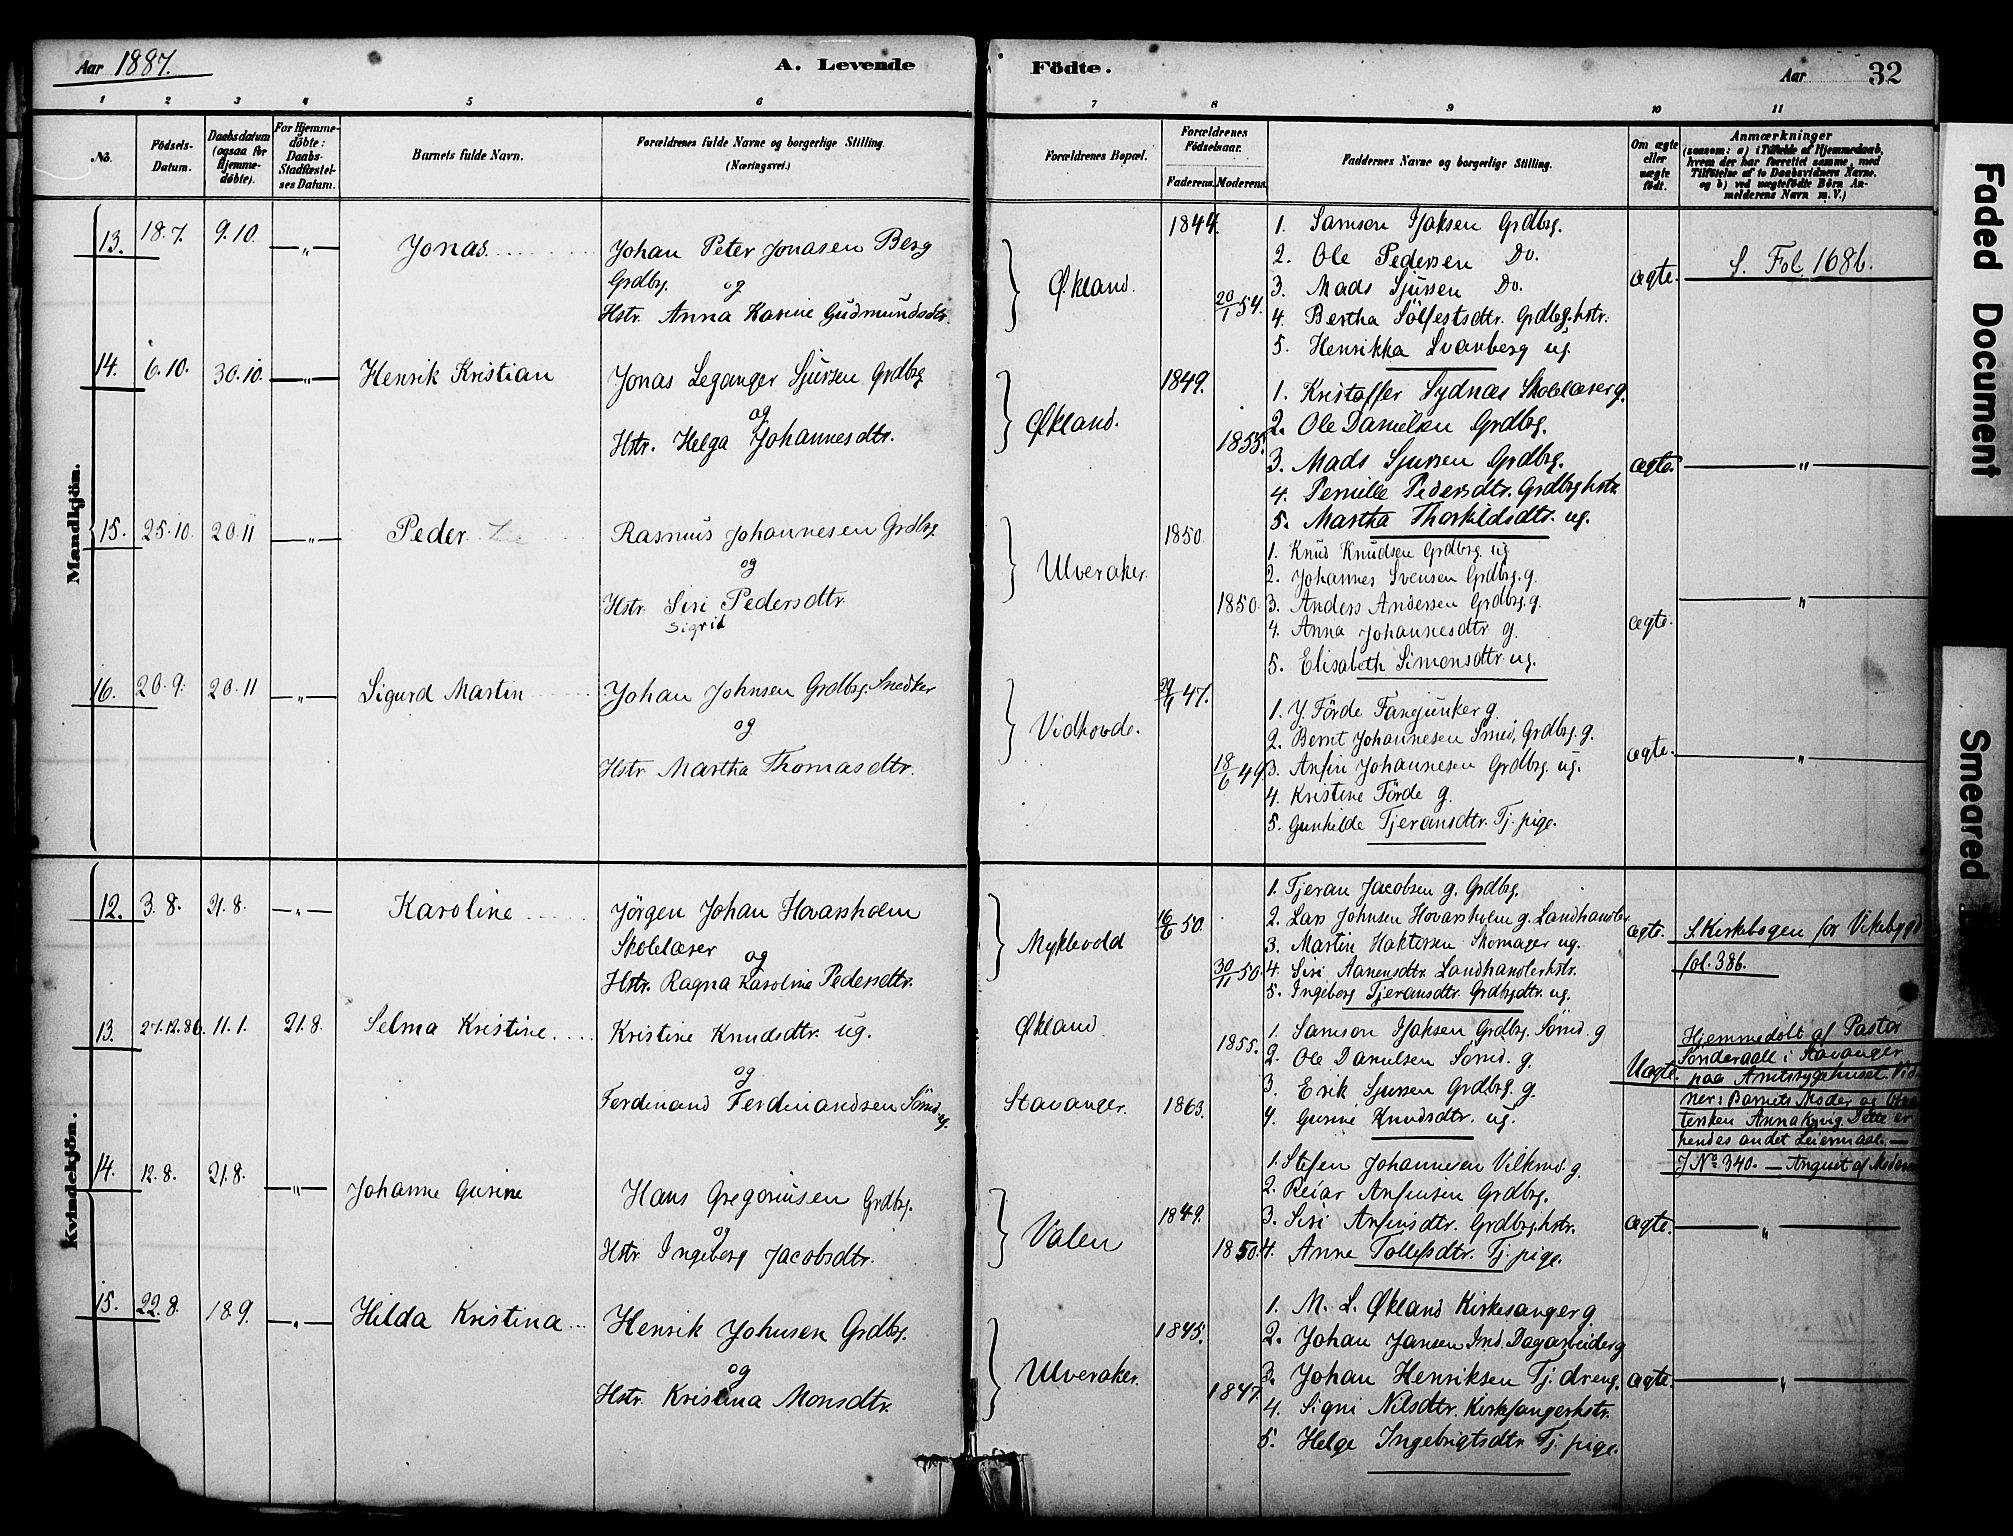 Aar 1887.
A. Levende
Födte.
Aar
32
1 2 3 4 5 6 7 8 9 10 11
No.
Födsels-Datum.
Daabsdatum (ogsaa for Hjemme-döbte).
For Hjemme-döbte: Daabs-Stadfæstel-ses Datum.
Barnets fulde Navn.
Forældrenes fulde Navne og borgerlige Stilling.
(Næringsvei.)
Forældrenes Bopæl.
Forældrenes Födselsaar.
Faderens. Moderens.
Faddernes Navne og borgerlige Stilling.
Om ægte eller uægte födt.
Anmærkninger
(saasom: a) i Tilfælde af Hjemmedaab,
hvem der har forrettet samme, med
Tilföielse af to Daabsvidners Navne.
og b) ved uægtefödte Börn An-
melderens Navn m. V.)
Mandkjön.
13. 18.7. 9.10. — " — Jonas
Johan Peter Jonasen Berg
Grdbrg. og
Hstr. Anna Karine Gudmundsdtr.
Økland.
1844.
20/1 54.
1. Samson Isaksen Grdbrg.
2. Ole Pedersen Do.
3. Mads Sjursen Do.
4. Bertha Sölfestsdtr. Grdbrg.hstr.
5. Henrikka Svanberg ug.
ægte.
S. Fol. 168b.
14. 6.10. 30.10. — " — Henrik Kristian
Jonas Leganger Sjursen Grdbrg
og
Hstr. Helga Johannesdtr.
Økland.
1849.
1855.
1. Kristoffer Sydnæs Skolelærer g.
2. Ole Danielsen Grdbrg.
3. Mads Sjursen Grdbrg.
4. Pernille Pedersdtr. Grdbrghstr.
5. Martha Thorkildsdtr. ug.
ægte.
— " —
15. 25.10. 20.11 — " — Peder
Rasmus Johannesen Grdbrg.
og
Hstr. Siri Pedersdtr.
Sigrid
Ulveraker.
1850
1850.
1. Knud Knudsen Grdbrg. ug
2. Johannes Svensen Grdbrg. g.
3. Anders Andersen Grdbrg. g.
4. Anna Johannesdtr g.
5. Elisabeth Simonsdtr ug.
ægte.
— " —
16. 20.9. 20.11 — " — Sigurd Martin
Johan Johnsen Grdbrg. Snedker
og
Hstr Martha Thomasdtr.
Vidhovde.
47.
18/6 49.
1. J. Förde Fanejunker g.
2. Bernt Johannesen Smed, Grdbrg. g.
3. Anfin Johannesen Grdbrg. ug.
4. Kristine Förde g.
5. Gunhilde Tjeransdtr. Tj. pige.
ægte.
— " —
Kvindekjön.
12. 3.8. 21.8. — " — Karoline
Jörgen Johan Hovarsholm
Skolelærer og
Hstr. Ragna Karoline Pedersdtr.
Myklevold
16/6 50.
30/11 50.
1. Tjeran Jacobsen g. Grdbrg.
2. Lars Johnsen Hovarsholm g. Landhandler
3. Martin Haktorsen Skomager ug.
4. Siri Aanensdtr. Landhandlerhstr.
5. Ingeborg Tjeransdtr. Grdbrgdtr. ug.
ægte.
S. Kirkebogen for Vikebygd
fol. 38b.
13. 27.12.86. 11.1. 21.8. Selma Kristine
Kristine Knudsdtr. ug.
og
Ferdinand Ferdinandsen Sömd.
ug.
Økland
Stavanger.
1863.
1855.
1. Samson Isaksen Grdbrg. Sömd. g
2. Ole Danielsen Sömd. g.
3. Erik Sjursen Grdbrg. g.
4. Gurine Knudsdtr. ug.
Uægte.
Hjemmedöbt af Pastor
Sönderaall i Stavanger
paa Amtssygehuset. Vid-
ner: Barnets Moder og
Anna Dette er
hendes andet Leiermaal. —
J No 340. — Angivet af Moderen
14. 12.8. 21.8. — " — Johanne Gurine
Hans Gregoriusen Grdbrg.
og
Hstr. Ingeborg Jacobsdtr.
Valen
1849.
1850.
1. Stefen Johannesen Vilkmd. g.
2. Reiar Anfinsen Grdbrg.
3. Siri Anfinsdtr. Grdbrg.hstr.
4. Anne Tollefsdtr. Tj. pige.
ægte.
— " —
15. 22.8. 18.9. — " — Hilda Kristina
Henrik Johnsen Grdbrg.
og
Hstr. Kristina Monsdtr.
Ulveraker.
1845.
1847.
1. M. L. Økland Kirkesanger g
2. Johan Jansen Ind. Dagarbeider g
3. Johan Henriksen Tj. dreng.
4. Signi Nilsdtr. Kirkesangerhstr.
5. Helge Ingebrigtsdtr Tj. pige.
ægte.
— " —
Faded Document
Smeared